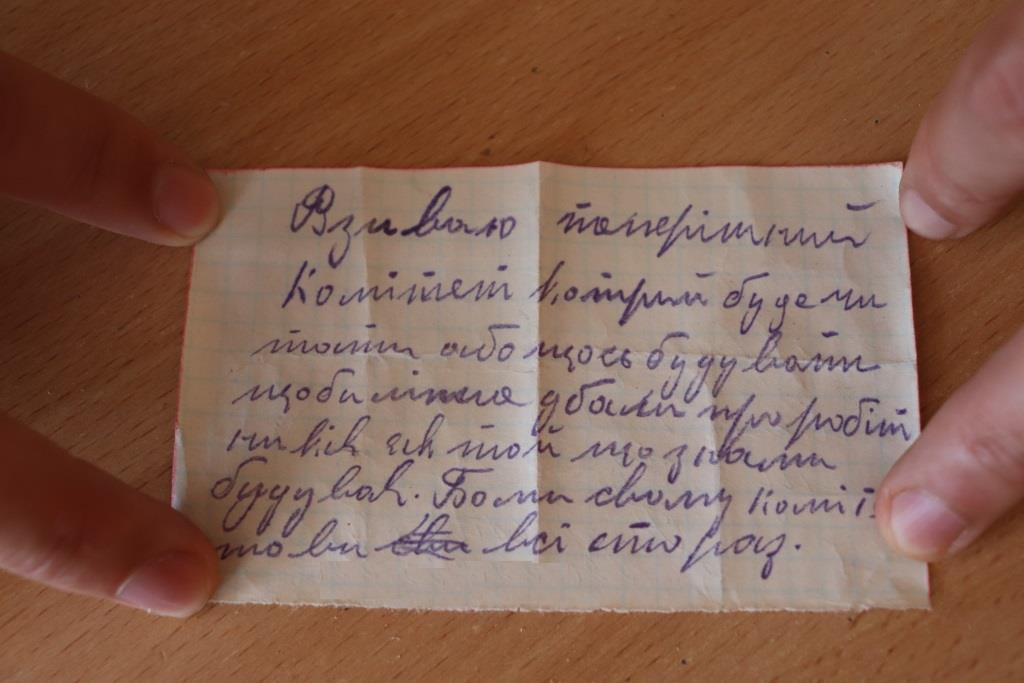 Взиваю теперішний
Комітет котрий буде чи
тати або щось будувати
щоби ліпше дбали про робіт
ників як той що з нами
будував. Бо ми свому коміті
тови всі сто раз.